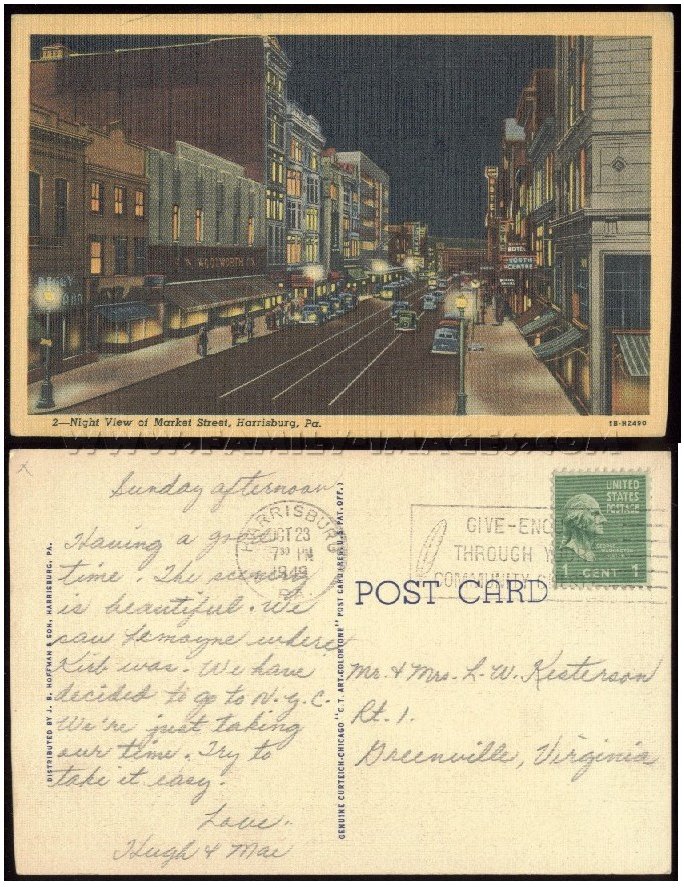 F. W. WOOLWORTH CO.
HOTEL
2—Night View of Market Street, Harrisburg, Pa.
1B-H2490
WWW.FAMILY-IMAGES.COM
Sunday afternoon
Having a good
time. The scenery
is beautiful. We
saw Lemoyne where
Kirb was. We have
decided to go to N.Y.C.
We're just taking
our time. Try to
take it easy.
Love.
Hugh & Mae
DISTRIBUTED BY J. B. HOFFMAN & SON, HARRISBURG, PA.
GENUINE CURTEICH-CHICAGO "C.T. ART-COLORTONE" POST CARD (REG. U.S. PAT. OFF.)
HARRISBURG
OCT 23
7 30 PM
1949
PA.
GIVE-ENO
THROUGH Y
COMMUNITY
UNITED
STATES
POSTAGE
1 CENT 1
POST CARD
Mr. & Mrs. L. W. Kesterson
Rt. 1.
Greenville, Virginia